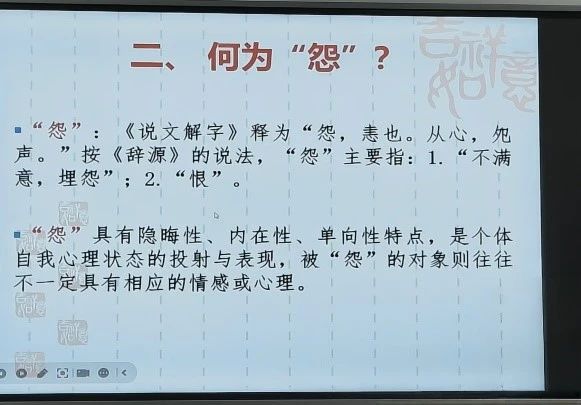 二、 何为“怨”?
“怨”：《说文解字》释为“怨，恚也。从心，夗
声。”按《辞源》的说法，“怨”主要指：1.“不满
意，埋怨”；2.“恨”。
“怨”具有隐晦性、内在性、单向性特点，是个体
自我心理状态的投射与表现，被“怨”的对象则往往
不一定具有相应的情感或心理。
吉祥如意